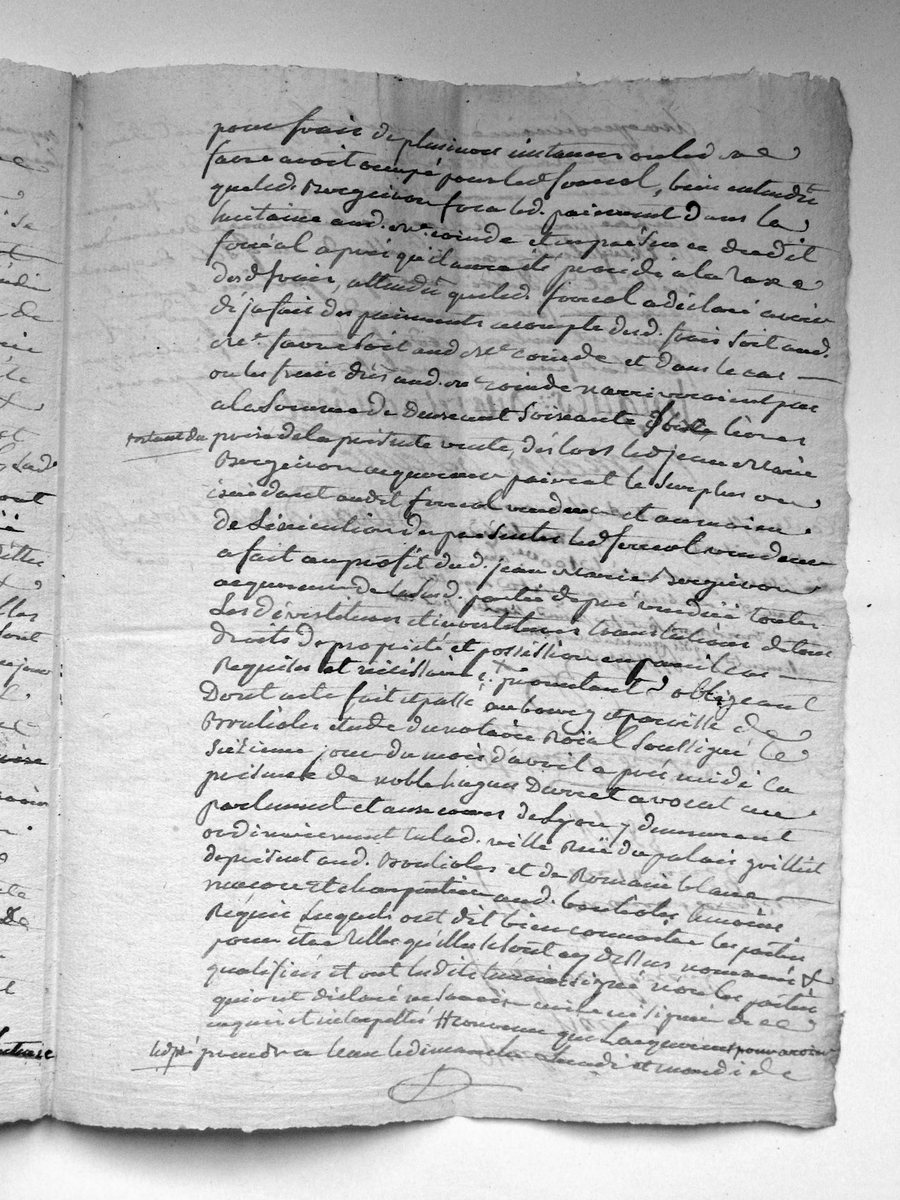 pour frais de plusieurs instances ou led. me
favre avoit occupé pour led. foncal, bien entendu
que led. Bergeiron fera led. paiement dans la
huitaine aud. me. coinde et en présence dudit
après qu'il aura été procédé à la taxe
desd. frais, attendu que led. foncal a déclaré avoir
deja fait des paiements acompte desd. frais soit aud.
me. favre soit aud. me. coinde et dans le cas
ou les frais dus aud. me coinde n'arriveroient pas
a la somme de deux cent soixante livres
restant du prix de la présente vente, dès lors led. jean marie
Bergeiron acquereur paieroit le surplus ou
excédant audit foncal vendeur et au moien
de l'exécution des presentes led. foncal vendeur
a fait au profit dud. jean Marie Bergeiron
acquereur de lasusd. partie de pré vendüe toutes
Les dévestitures et investitures translations de tous
droits de propriété et possession en pareil cas
Requises et nécessaires promettant obligeant
Dont acte fait et passé au bourg et paroisse de
étude du notaire Roïal soussigné le
jour du mois d'avril après midi en
présence de noble hugues avocat en
parlement et aux cours de Lyon y demeurant
ordinairement en lad. ville Rüe du palais grillet
de présent aud. et de Romain blanc
et charpentier aud. témoins
Requis Lesquels ont dit bien connoitre les parties
pour être telles qu'elles sont cy dessus nommées &
qualifiées et ont lesdits temoins signé non les parties
qui ont déclaré ne savoir écrire ni signer de ce
enquis et interpellés convenu que Lacquereur pourra
led. pré prendra leau le dimanche Lundi et mardi de